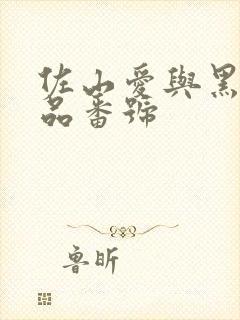 佐山愛與黑
品番號
魯昕